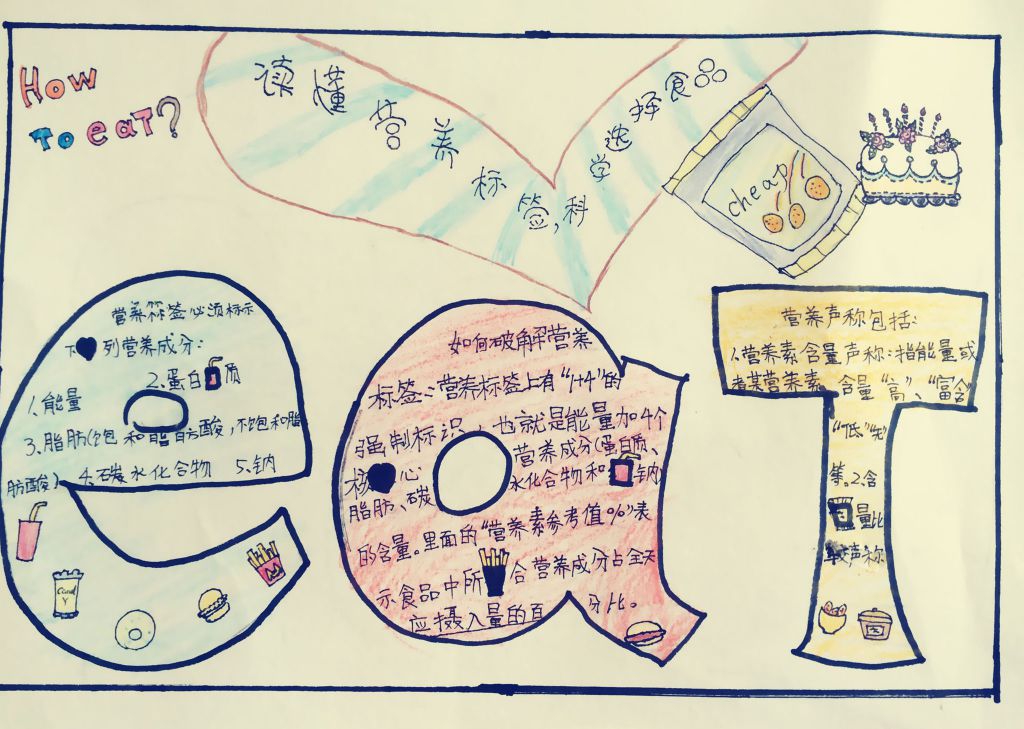 How
To eaT?
读懂营养标签,科学选择食品
cheap
Candy
营养标签必须标示
下列营养成分:
1.能量
2.蛋白质
3.脂肪(饱和脂肪酸,不饱和脂
肪酸) 4.碳水化合物 5.钠
如何破解营养
标签:营养标签上有“1+4”的
强制标识,也就是能量加4个
核心营养成分(蛋白质、
脂肪、碳水化合物和钠)
的含量。里面的“营养素参考值%”表
示食品中所含营养成分占全天
应摄入量的百分比。
营养声称包括:
1.营养素含量声称:指能量或
者某营养素含量“高”、“富含”
“低”“无”
等。2.含
量比
较声称